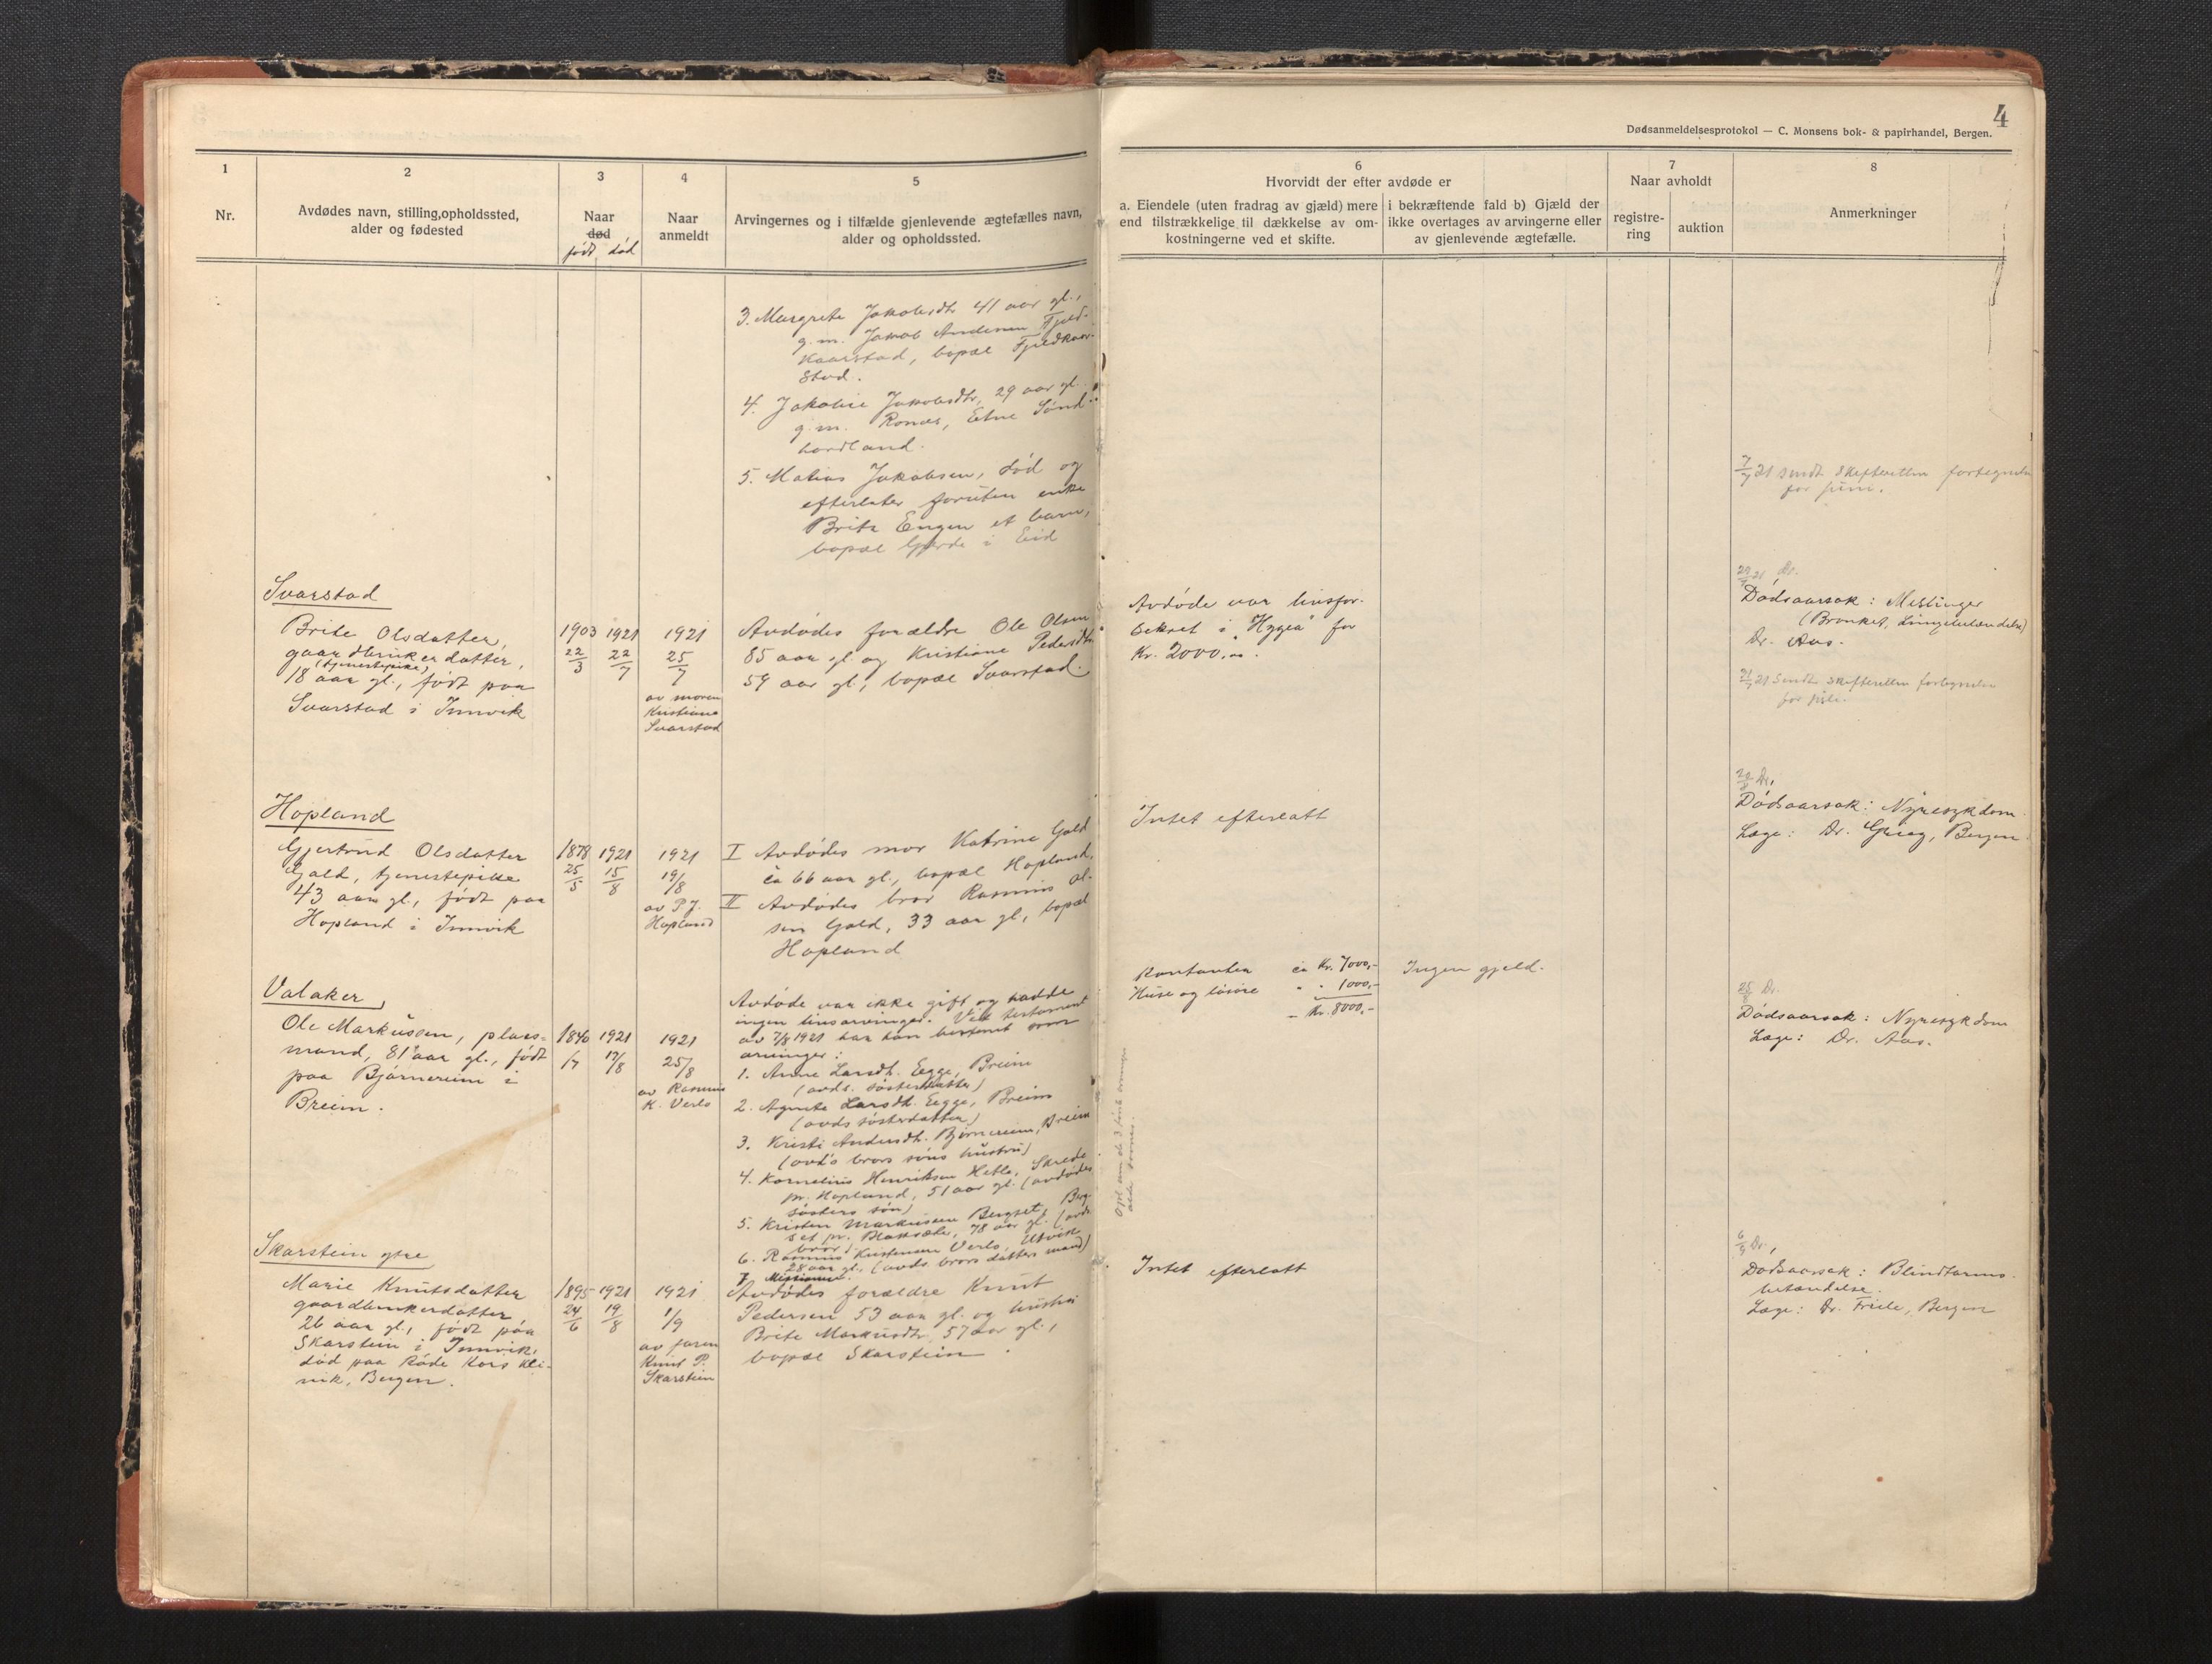 4
Dødsanmeldelsesprotokol — C. Monsens bok- & papirhandel, Bergen.
1
Nr.
2
Avdødes navn, stilling, opholdssted,
alder og fødested
3
Naar
død
født død
4
Naar
anmeldt
5
Arvingernes og i tilfælde gjenlevende ægtefælles navn,
alder og opholdssted.
6
Hvorvidt der efter avdøde er
a. Eiendele (uten fradrag av gjæld) mere
end tilstrækkelige til dækkelse av om-
kostningerne ved et skifte.
i bekræftende fald b) Gjæld der
ikke overtages av arvingerne eller
av gjenlevende ægtefælle.
7
Naar avholdt
registre-
ring
auktion
8
Anmerkninger
3. Margrete Jakobsdtr 41 aar gl.,
g.m. Jakob Andersen Fjeld-
kaarstad, bopæl Fjeldkaar-
stad.
4. Jakobine Jakobsdtr, 29 aar gl.
g.m. Etne Sønd-
hordland.
5. Matias Jakobsen, død og
efterlater foruten enke
Brite Engen et barn,
bopæl Gjerde i Eid
7/7 21 sendt skifteretten fortegnelse
for juni.
Svarstad
Brite Olsdatter,
gaardbruker datter,
(tjenestepike)
18 aar gl., født paa
Svarstad i Innvik
1903 22/3
1921 22/7
1921
25/7
av moren
Kristiane
Svarstad
Avdødes forældre Ole Olsen
85 aar gl. og Kristiane Pedersdtr
59 aar gl., bopæl Svarstad.
Avdøde var livsfor-
sikret i "Hygea" for
Kr. 2000,00.
Dr.
Dødsaarsak: Meslinger
(Bronket, Lungebetændelse)
Dr. Aas.
21 Sendt skifteretten fortegnelse
for juli.
Hopland
Gjertrud Olsdatter
Gald, tjenestepike
43 aar gl., født paa
Hopland i Innvik
1878 25/5
1921 15/8
1921
19/8
av P.J.
Hopland
I Avdødes mor Katrine Gald
ca 66 aar gl., bopæl Hopland.
II Avdødes bror Rasmus Ol-
sen Gald, 33 aar gl., bopæl
Hopland
Intet efterlatt
Dr.
Dødsaarsak: Nyresykdom.
Læge: Dr. Grieg, Bergen.
Valaker,
Ole Markussen, plass-
mand, 81 aar gl., født
paa Bjørnereim i
Breim.
1840
1/7
1921
17/8
1921
25/8
av Rasmus
K. Verlo
Avdøde var ikke gift og hadde
ingen livsarvinger. Ved testament
av 7/8 1921 har han bestemt som
arvinger:
1. Anne Larsdtr. Egge, Breim
(avds. søsterdatter)
2. Agnete Larsdtr. Egge, Breim
(avds søsterdatter)
3. Kristi Andersdtr. Bjørnereim, Breim
(avd's brors søns hustru)
4. Kornelius Henriksen Hetle, Skrede
pr. Hopland, 51 aar gl. (avdødes
søsters søn)
5. Kristen Markussen Bergset, Berg-
set pr. 78 aar gl. (avds
bror)
6. Rasmus Kristensen Verlo, Utvik
28 aar gl., (avds. brors datters mand)
7. Missionen.
Kontanter ca Kr. 7000,-
Huse og løsøre " " 1000,-
- Kr. 8000,-
Ingen gjeld.
25/8 Dr.
Dødsaarsak: Nyresykdom
Læge: Dr. Aas.
Skarstein ytre
Marie Knutsdatter
gaardbrukerdatter
26 aar gl., født paa
Skarstein i Innvik,
død paa Røde Kors kli-
nik, Bergen.
1895 24/6
1921 19/8
1921
1/9
av faren
Knut P.
Skarstein
Avdødes forældre Knut
Pedersen 53 aar gl. og hustru
Brite Markusdtr. 57 aar gl.,
bopæl Skarstein.
Intet efterlatt
Dr,
Dødsaarsak: Blindtarms-
betændelse.
Læge: Dr. Friele, Bergen